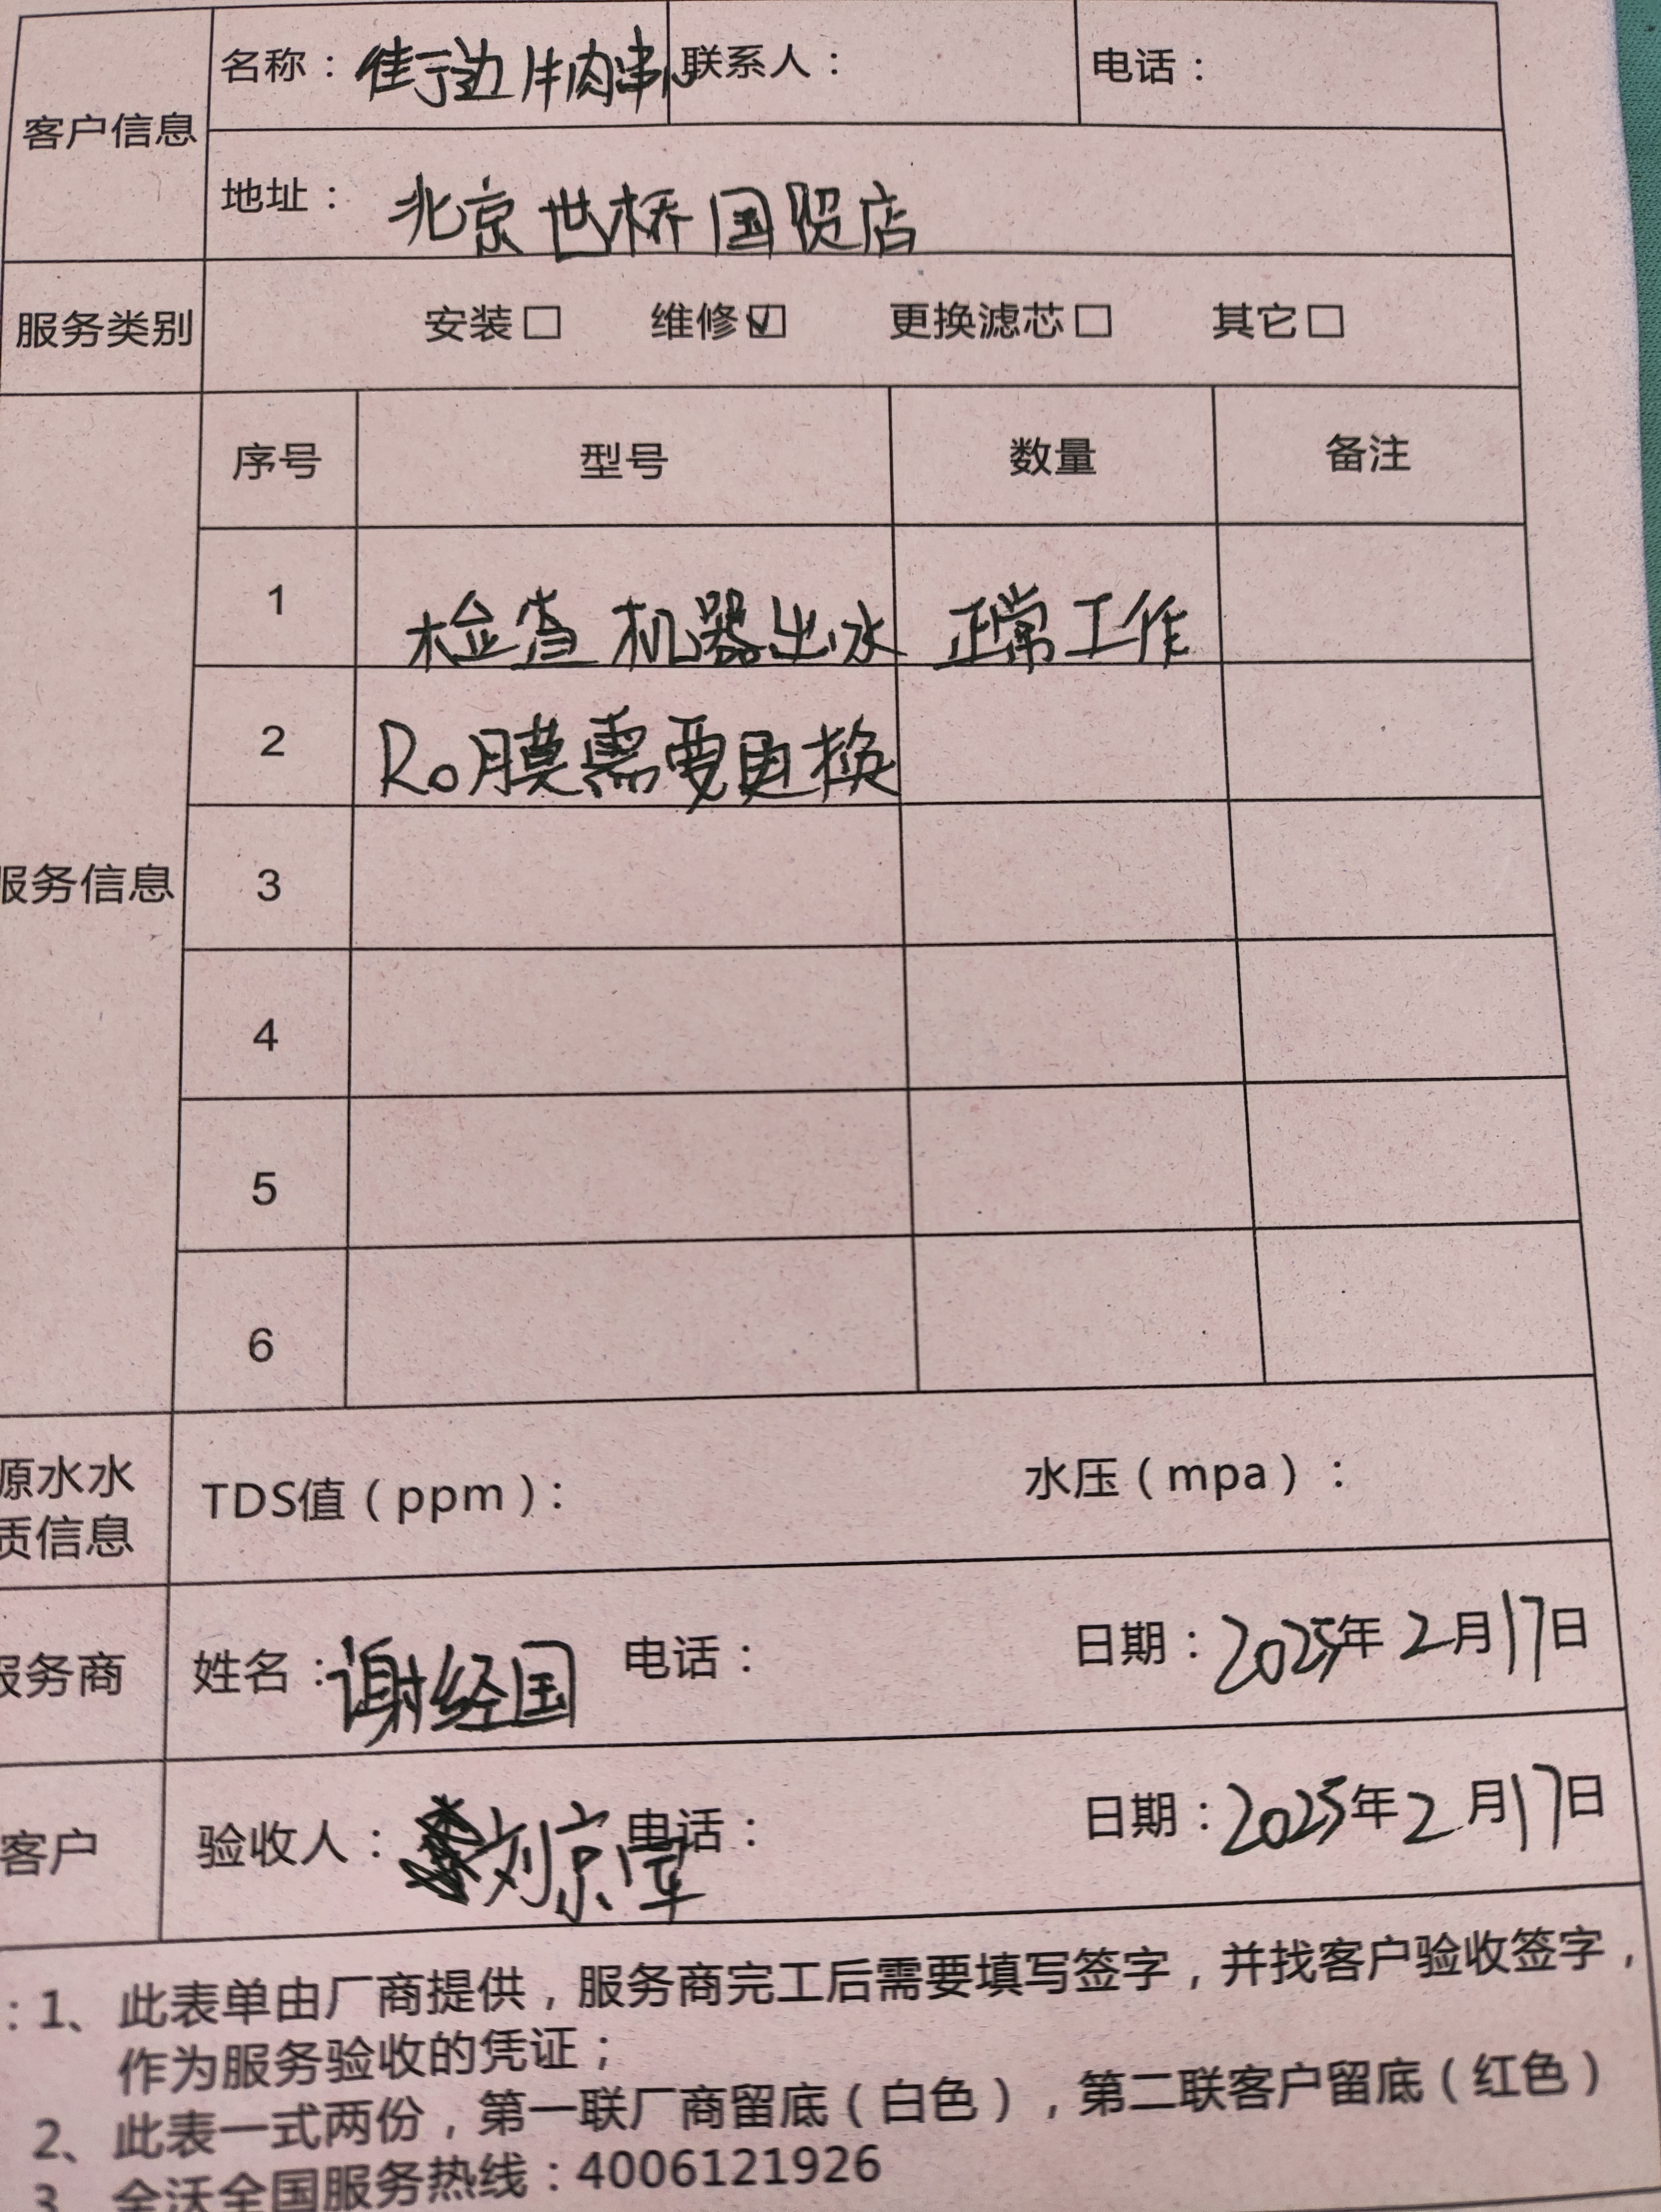 客户信息
名称：街边牛肉串 联系人： 电话：
地址：北京世桥国贸店
服务类别 安装□ 维修☑ 更换滤芯□ 其它□
序号 型号 数量 备注
1 检查机器出水 正常工作
2 Ro膜需要更换
服务信息
3
4
5
6
原水水
质信息
TDS值（ppm）： 水压（mpa）：
服务商 姓名：谢经国 电话： 日期：2025年2月17日
客户 验收人：刘京 电话： 日期：2025年2月17日
：1、此表单由厂商提供，服务商完工后需要填写签字，并找客户验收签字，
作为服务验收的凭证；
2、此表一式两份，第一联厂商留底（白色），第二联客户留底（红色）
3、全沃全国服务热线：4006121926